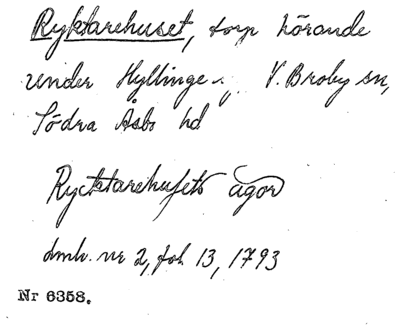 Ryktarehuset, torp hörande
under Hyllinge i V. Broby sn,
Södra Åsbo hd
Rycktarehusets ägor
dmh. nr 2, fol. 13, 1793
Nr 6358.